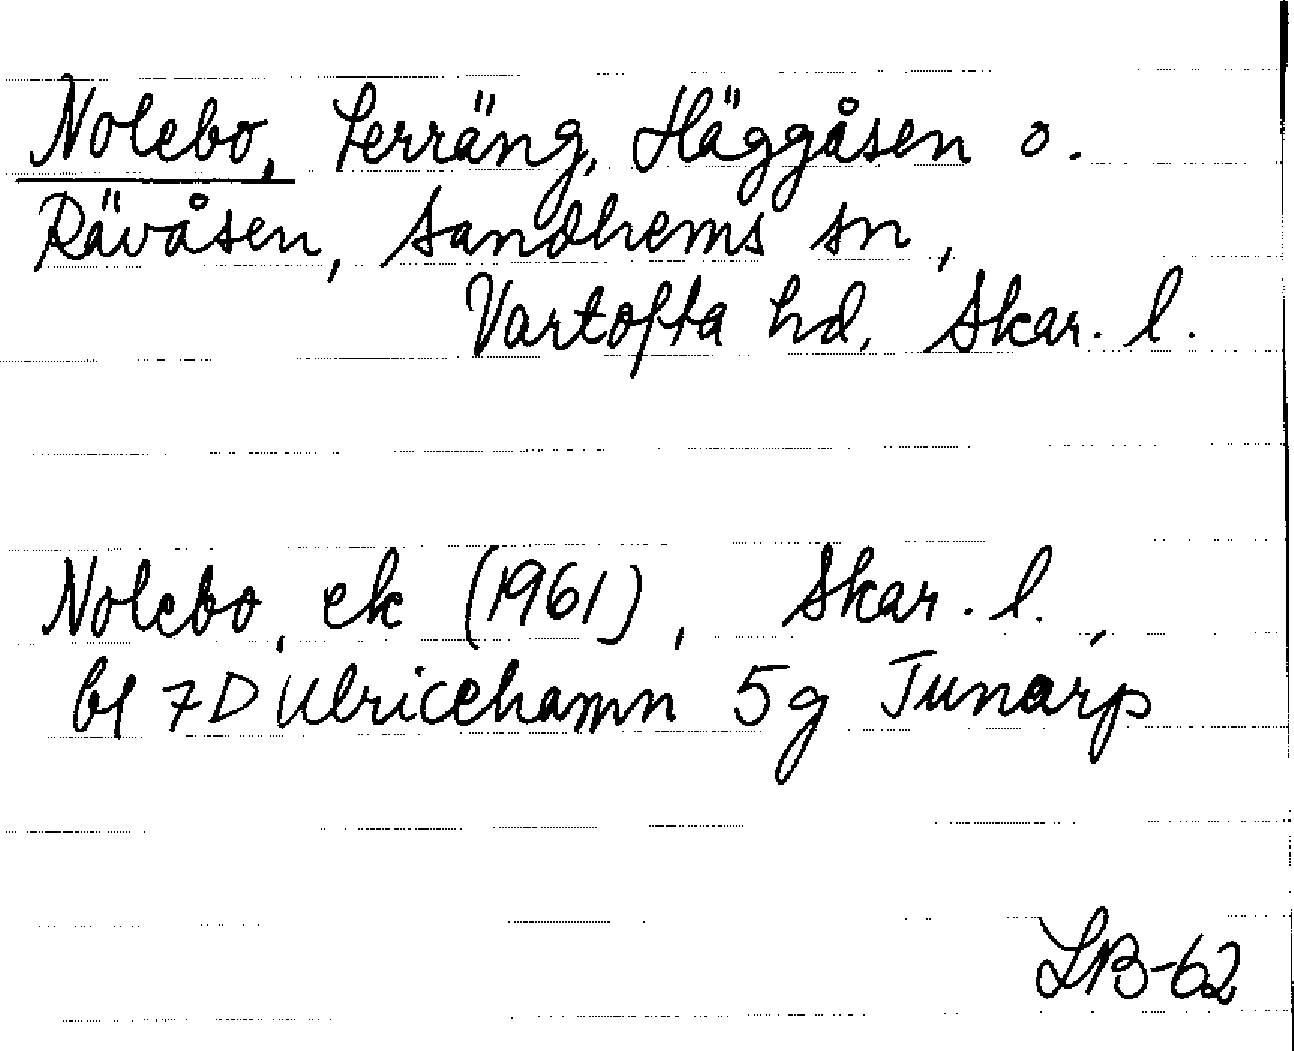 Nolebo, terräng, Häggåsen o.
Rävåsen, Sandhems sn,
Vartofta hd, Skar. l.
Nolebo, ek (1961), Skar. l.,
bl 7D Ulricehamn 5g Tunarp
LB-62